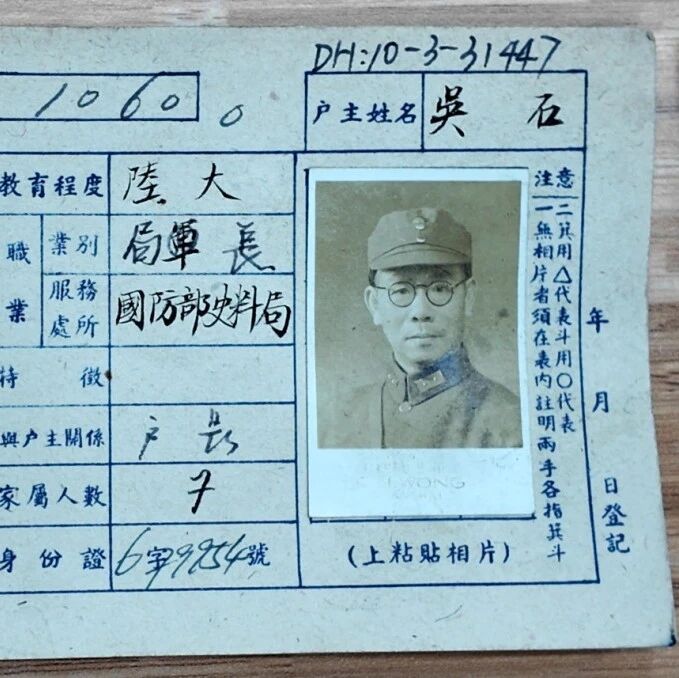 DH:10-3-31447
10600
户主姓名 吳石
教育程度 陸大
職業 業別 局軍長
服務處所 國防部史料局
特徵
與户主關係 户長
家屬人數 7
身份證 6字9254號
WONG
(上粘貼相片)
注意
一無相片者須在表内註明兩手各指箕斗
二箕用△代表斗用○代表
年月日登記